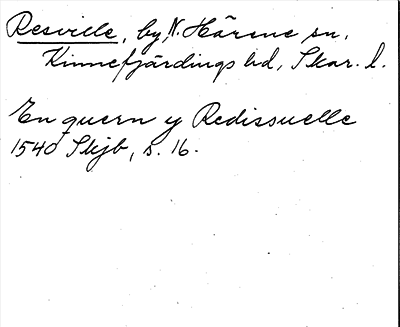 Resville, by, N. Härene sn,
Kinnefjärdings hd, Skar. l.
En quern y Redissuelle
1540 Skjb, s. 16.